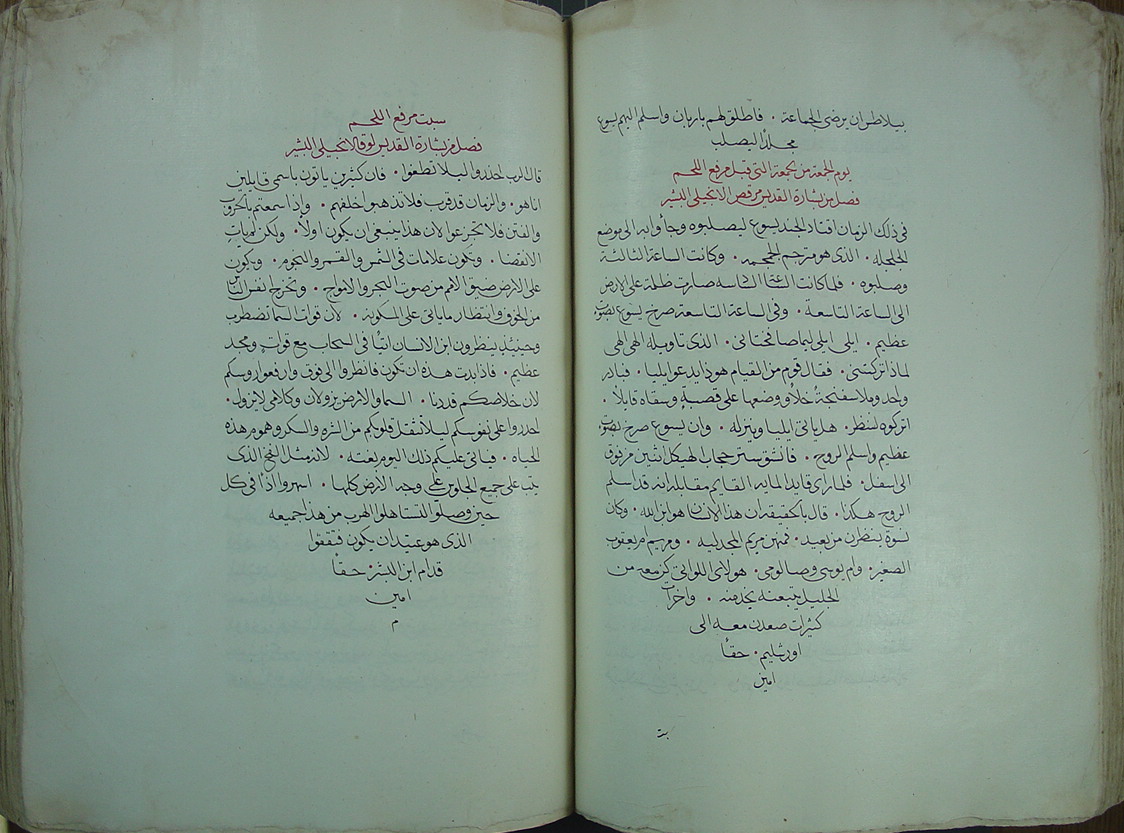 بيلاطس ان يرضى الجماعة . فاطلق لهم باربان واسلم اليهم يسوع
مجلدًا ليصلب
يوم الجمعة من الجمعة التى قبل مرفع اللحم
فصل من بشارة القديس مرقص الانجيلى البشير
فى ذلك الزمان اقتاد الجند ليسوع ليصلبوه وجاوا به الى موضع
الجلجله . الذى هو مترجم الجمجمه . وكانت الساعة الثالثة
وصلبوه . فلما كانت الساعة السادسه صارت ظلمة على الارض
الى الساعة التاسعة . وفى الساعة التاسعة صرخ يسوع بصوت
عظيم . ايلى ايلى ليما صافختانى . الذى تاويله الهى الهى
لماذا تركتنى . فقال قوم من القيام هوذا يدعو ايليا . فبادر
واحد وملا سفنجة خلًا ووضعها على قصبةٍ وسقاه قايلًا .
اتركوه لننظر . هل ياتى ايليا وينزله . وان يسوع صرخ بصوت
عظيم واسلم الروح . فانشق ستر حجاب الهيكل اثنين من فوق
الى اسفل . فلما راى قايد المايه القايم مقابله انه قد اسلم
الروح هكذا . قال بالحقيقه ان هذا الانسان هو ابن الله . وكان
نسوة ينظرن من بعيد . فمنهن مريم المجدليه . ومريم ام يعقوب
الصغير . وام يوسى وصالومى . هولاى اللواتى كن معه من
الجليل يتبعنه يخدمنه . واخرات
كثيرات صعدن معه الى
اورشليم . حقًا
امين
سبت مرفع اللحم
فصل من بشارة القديس لوقا الانجيلى البشير
قال الرب احذروا ليلا تطغوا . فان كثيرين ياتون باسمى قايلين
انا هو . والزمان قد قرب فلا تذهبوا خلفهم . واذا سمعتم بالحروب
والفتن فلا تجزعوا لان هذا ينبغى ان يكون اولًا . ولكن لم يات
الانقضا . وتكون علامات فى الشمس والقمر والنجوم . ويكون
على الارض ضيق الامم من صوت البحر والامواج . وتخرج انفس الناس
من الخوف وانتظار ما ياتى على المسكونة . لان قوات السما تضطرب
وحينيذٍ ينظرون ابن الانسان اتيًا فى السحاب مع قواتٍ ومجد
عظيم . فاذا بدت هذه ان تكون فانظروا الى فوق وارفعوا روسكم
لان خلاصكم قد دنا . السما والارض يزولان وكلامى لا يزول .
احذروا على نفوسكم ليلا تثقل قلوبكم من الشره والسكر وهموم هذه
الحياه . فياتى عليكم ذلك اليوم بغتة . لانه مثل الفخ الذى
يثب على جميع الجلوس على وجه الارض كلها . اسهروا اذًا فى كل
حين وصلّوا لتستاهلوا الهرب من هذا جميعه
الذى هو عتيد ان يكون فتقفوا
قدام ابن البشر . حقًا
امين
م